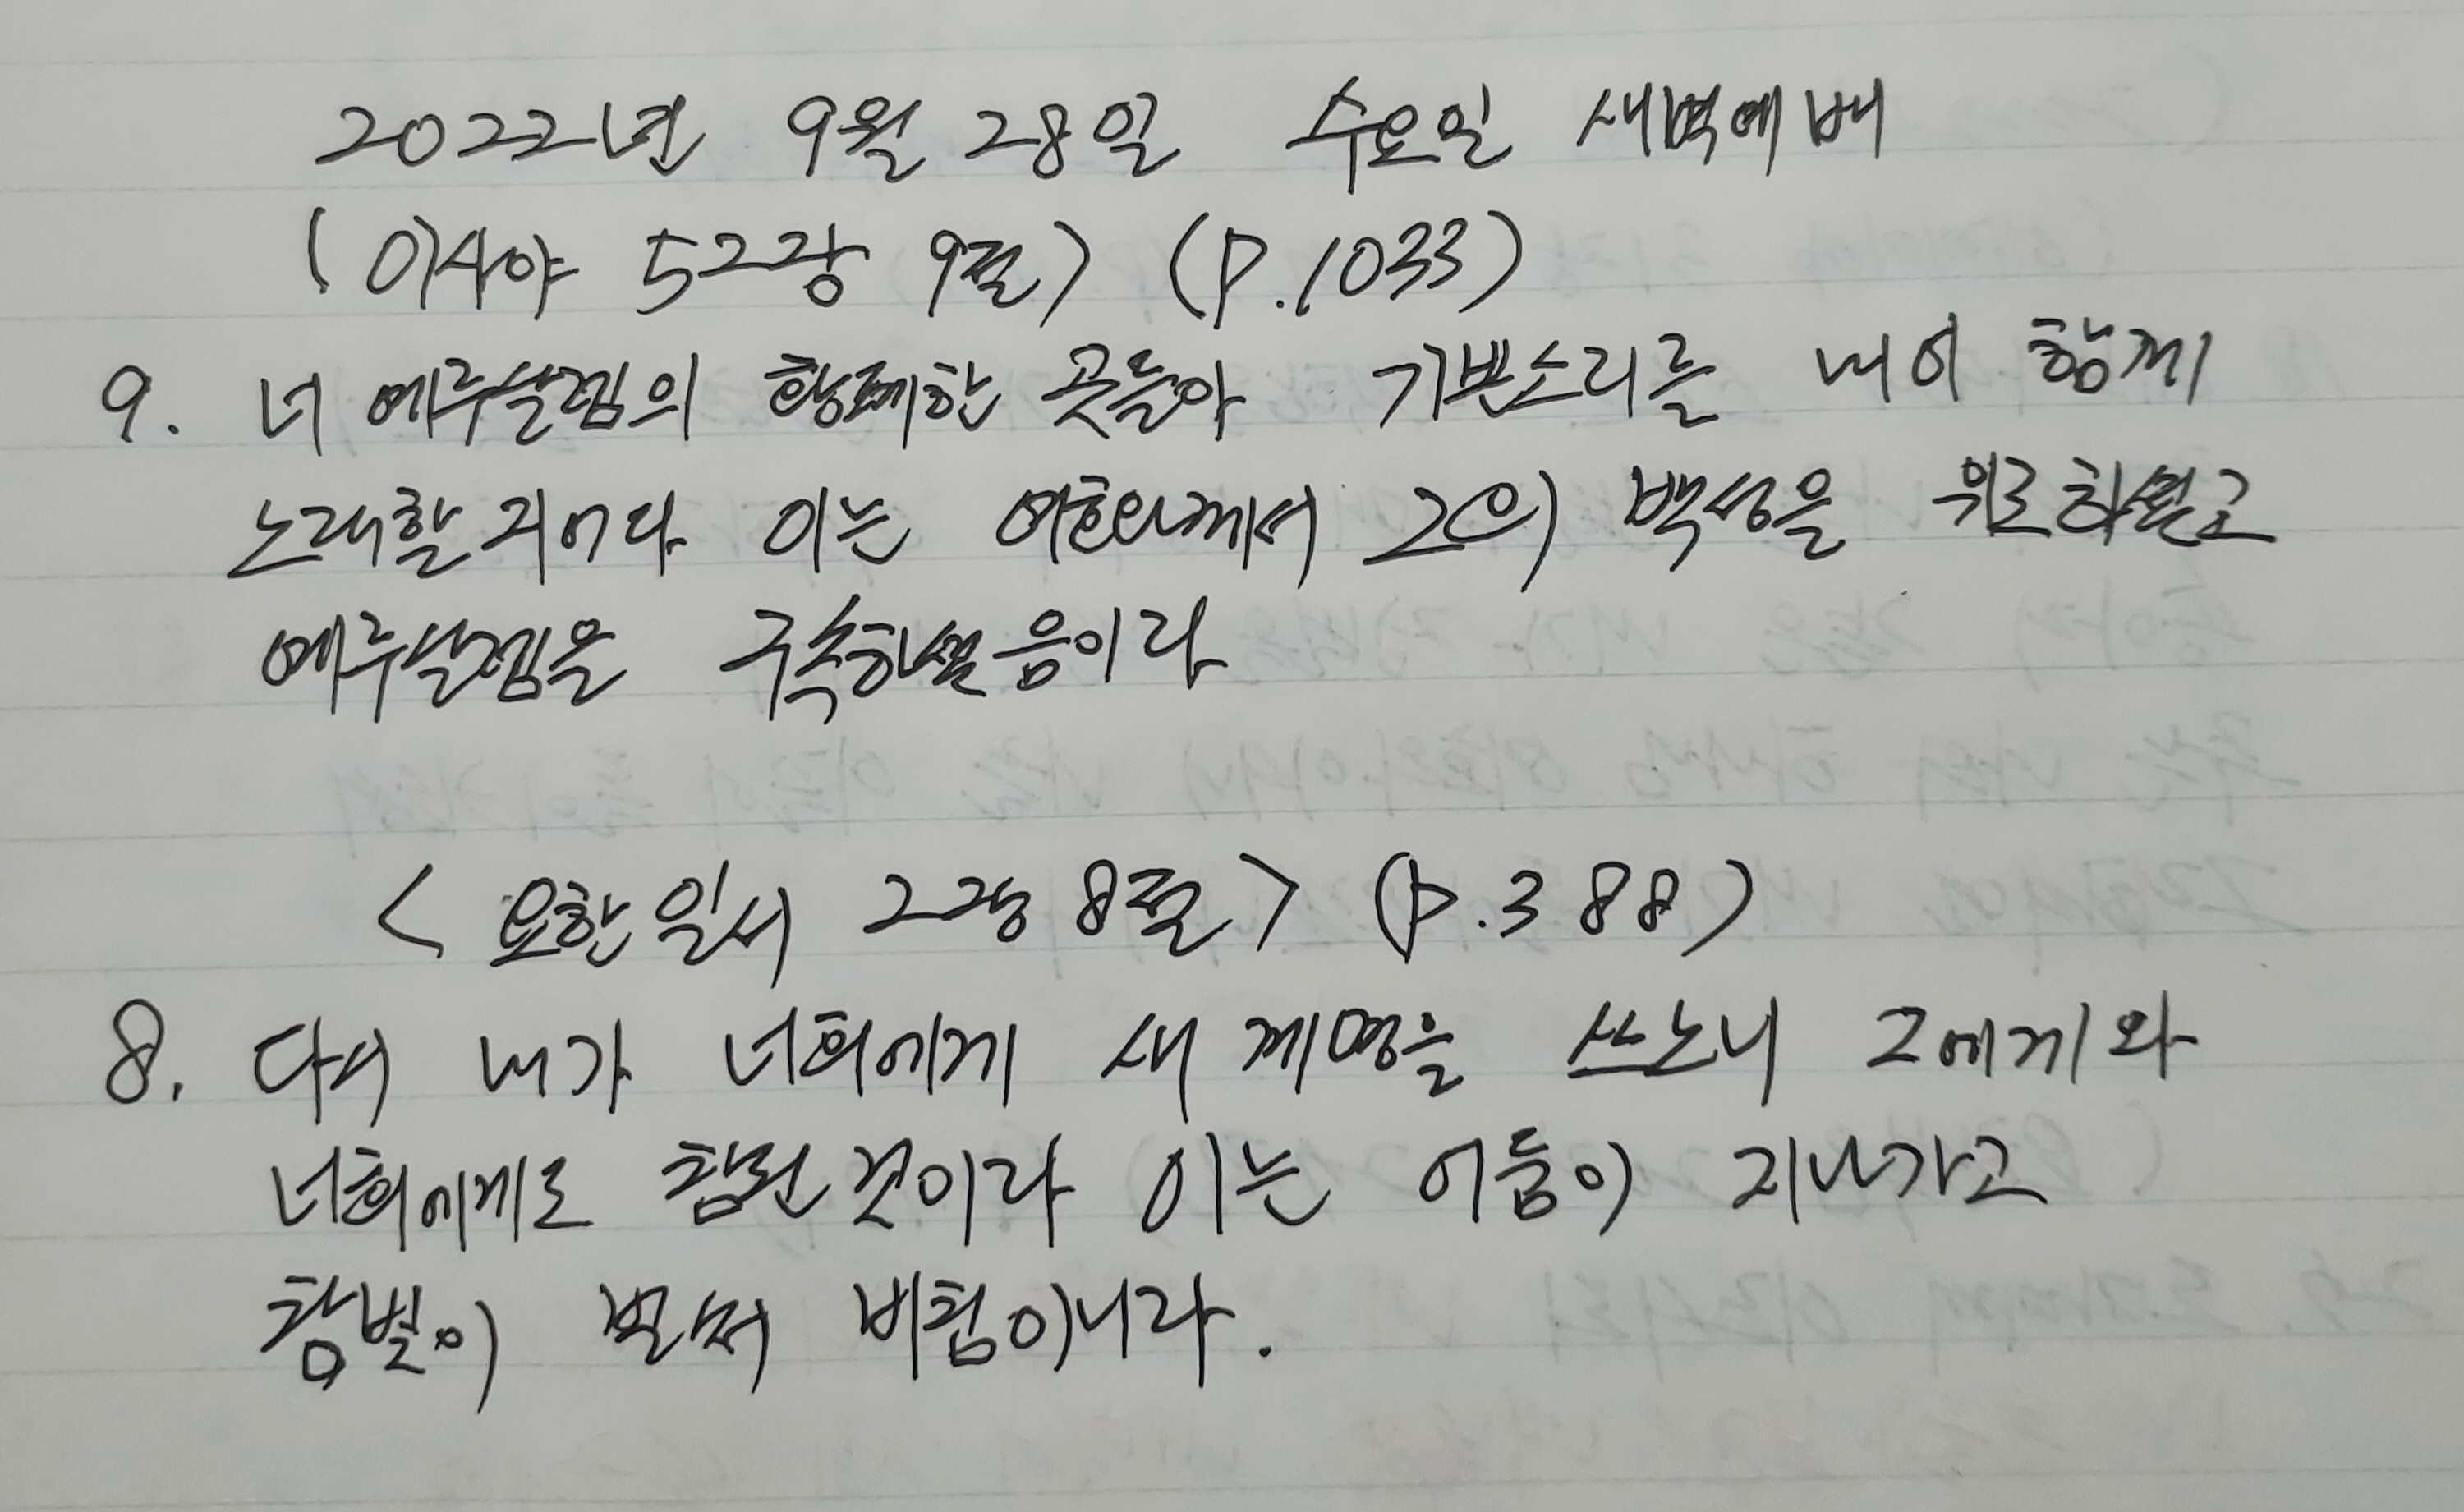 2022년 9월 28일 수요일 새벽예배
(이사야 52장 9절) (P.1033)
9. 너 예루살렘의 황폐한 곳들아 기쁜소리를 내어 함께
노래할지어다 이는 여호와께서 그의 백성을 위로하셨고
예루살렘을 구속하셨음이라
<요한일서 2장 8절> (P.388)
8. 다시 내가 너희에게 새 계명을 쓰노니 그에게와
너희에게도 참된 것이라 이는 어둠이 지나가고
참빛이 벌써 비침이니라.